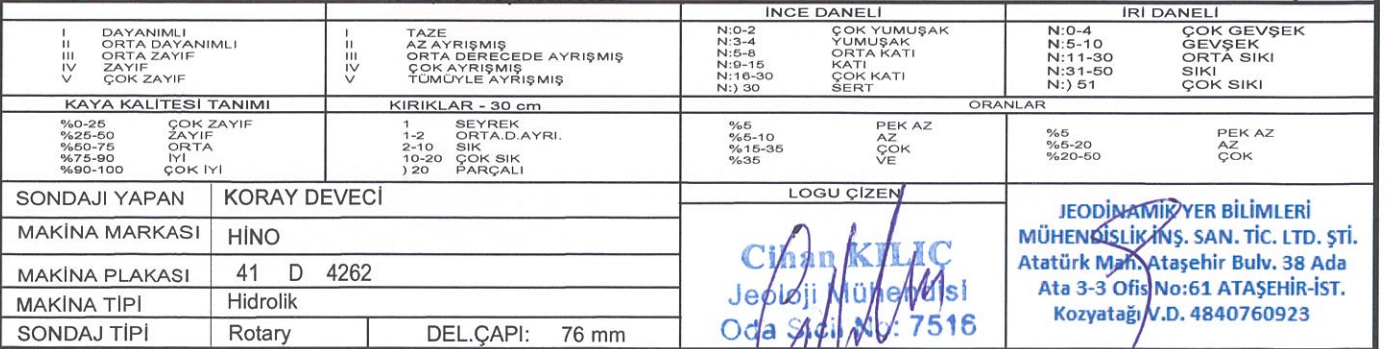 İNCE DANELİ İRİ DANELİ
I DAYANIMLI
II ORTA DAYANIMLI
III ORTA ZAYIF
IV ZAYIF
V ÇOK ZAYIF
I TAZE
II AZ AYRIŞMIŞ
III ORTA DERECEDE AYRIŞMIŞ
IV ÇOK AYRIŞMIŞ
V TÜMÜYLE AYRIŞMIŞ
N:0-2 ÇOK YUMUŞAK
N:3-4 YUMUŞAK
N:5-8 ORTA KATI
N:9-15 KATI
N:16-30 ÇOK KATI
N:) 30 SERT
N:0-4 ÇOK GEVŞEK
N:5-10 GEVŞEK
N:11-30 ORTA SIKI
N:31-50 SIKI
N:) 51 ÇOK SIKI
KAYA KALİTESİ TANIMI
%0-25 ÇOK ZAYIF
%25-50 ZAYIF
%50-75 ORTA
%75-90 İYİ
%90-100 ÇOK İYİ
KIRIKLAR - 30 cm
1 SEYREK
1-2 ORTA.D.AYRI.
2-10 SIK
10-20 ÇOK SIK
) 20 PARÇALI
ORANLAR
%5 PEK AZ
%5-10 AZ
%15-35 ÇOK
%35 VE
%5 PEK AZ
%5-20 AZ
%20-50 ÇOK
SONDAJI YAPAN KORAY DEVECİ
MAKİNA MARKASI HİNO
MAKİNA PLAKASI 41 D 4262
MAKİNA TİPİ Hidrolik
SONDAJ TİPİ Rotary DEL.ÇAPI: 76 mm
LOGU ÇİZEN
Cihan KILIÇ
Jeoloji Mühendisi
Oda Sicil No: 7516
JEODİNAMİK YER BİLİMLERİ
MÜHENDİSLİK İNŞ. SAN. TİC. LTD. ŞTİ.
Atatürk Mah. Ataşehir Bulv. 38 Ada
Ata 3-3 Ofis No:61 ATAŞEHİR-İST.
Kozyatağı V.D. 4840760923